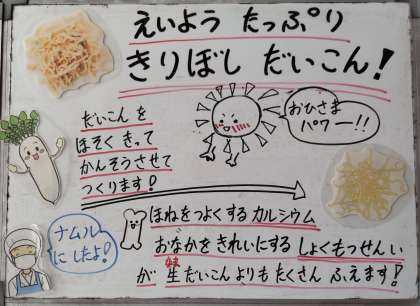 えいよう たっぷり
きりぼし だいこん!
だいこん を
ほそく きって
かんそうさせて
つくります!
おひさま
パワー!!
ほねをつよくする カルシウム
おなかをきれいにする しょくもつせんい
が 生だいこん よりも たくさん ふえます!
ナムル
に したよ!